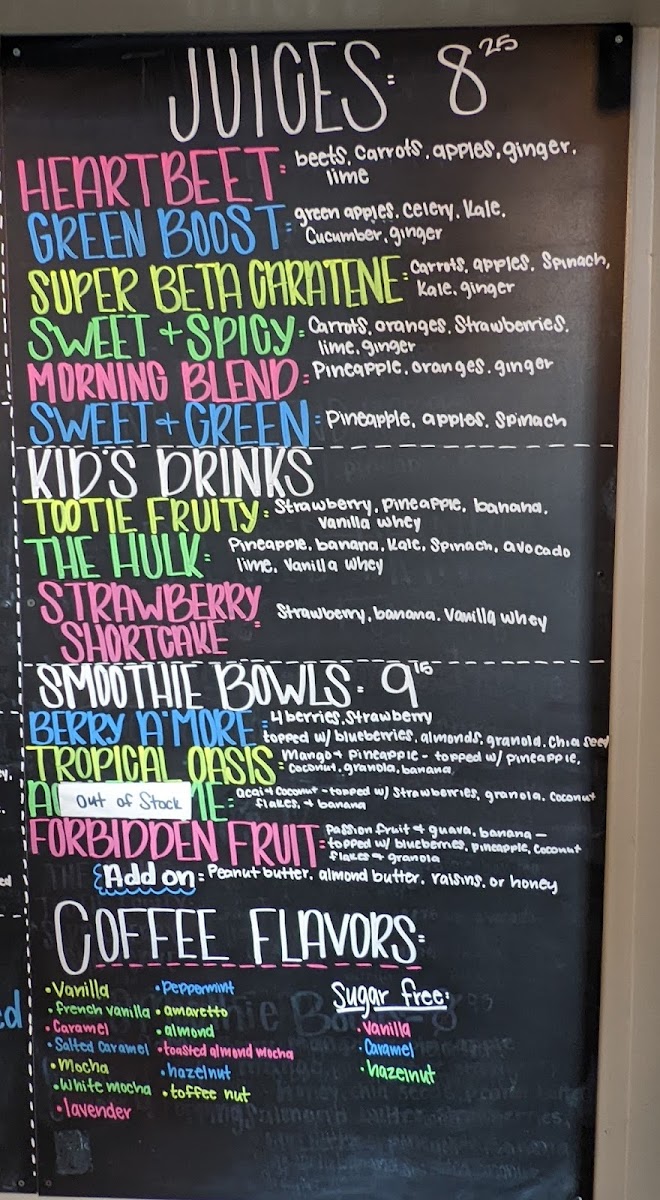 JUICES: 8 25
HEARTBEET: beets, carrots, apples, ginger,
lime
GREEN BOOST: green apples, celery, kale,
cucumber, ginger
SUPER BETA CARATENE: carrots, apples, spinach,
kale, ginger
SWEET + SPICY: carrots, oranges, strawberries,
lime, ginger
MORNING BLEND: Pineapple, oranges, ginger
SWEET + GREEN: Pineapple, apples, spinach
KID'S DRINKS
TOOTIE FRUITY: Strawberry, pineapple, banana,
vanilla whey
THE HULK: Pineapple, banana, kale, spinach, avocado
lime, vanilla whey
STRAWBERRY
SHORTCAKE: Strawberry, banana, vanilla whey
SMOOTHIE BOWLS: 9
BERRY A'MORE: 4 berries, strawberry
topped w/ blueberries, almonds, granola, chia seed
TROPICAL OASIS: Mango + pineapple - topped w/ pineapple,
coconut, granola, banana
Out of Stock ME: acai + coconut - topped w/ strawberries, granola, coconut
flakes, + banana
FORBIDDEN FRUIT: passion fruit + guava, banana -
topped w/ blueberries, pineapple, coconut
flakes + granola
Add on: Peanut butter, almond butter, raisins, or honey
COFFEE FLAVORS:
• Vanilla
• French vanilla
• Caramel
• Salted caramel
• Mocha
• White mocha
• lavender
• Peppermint
• amaretto
• almond
• toasted almond mocha
• hazelnut
• toffee nut
Sugar free:
• Vanilla
• Caramel
• hazelnut